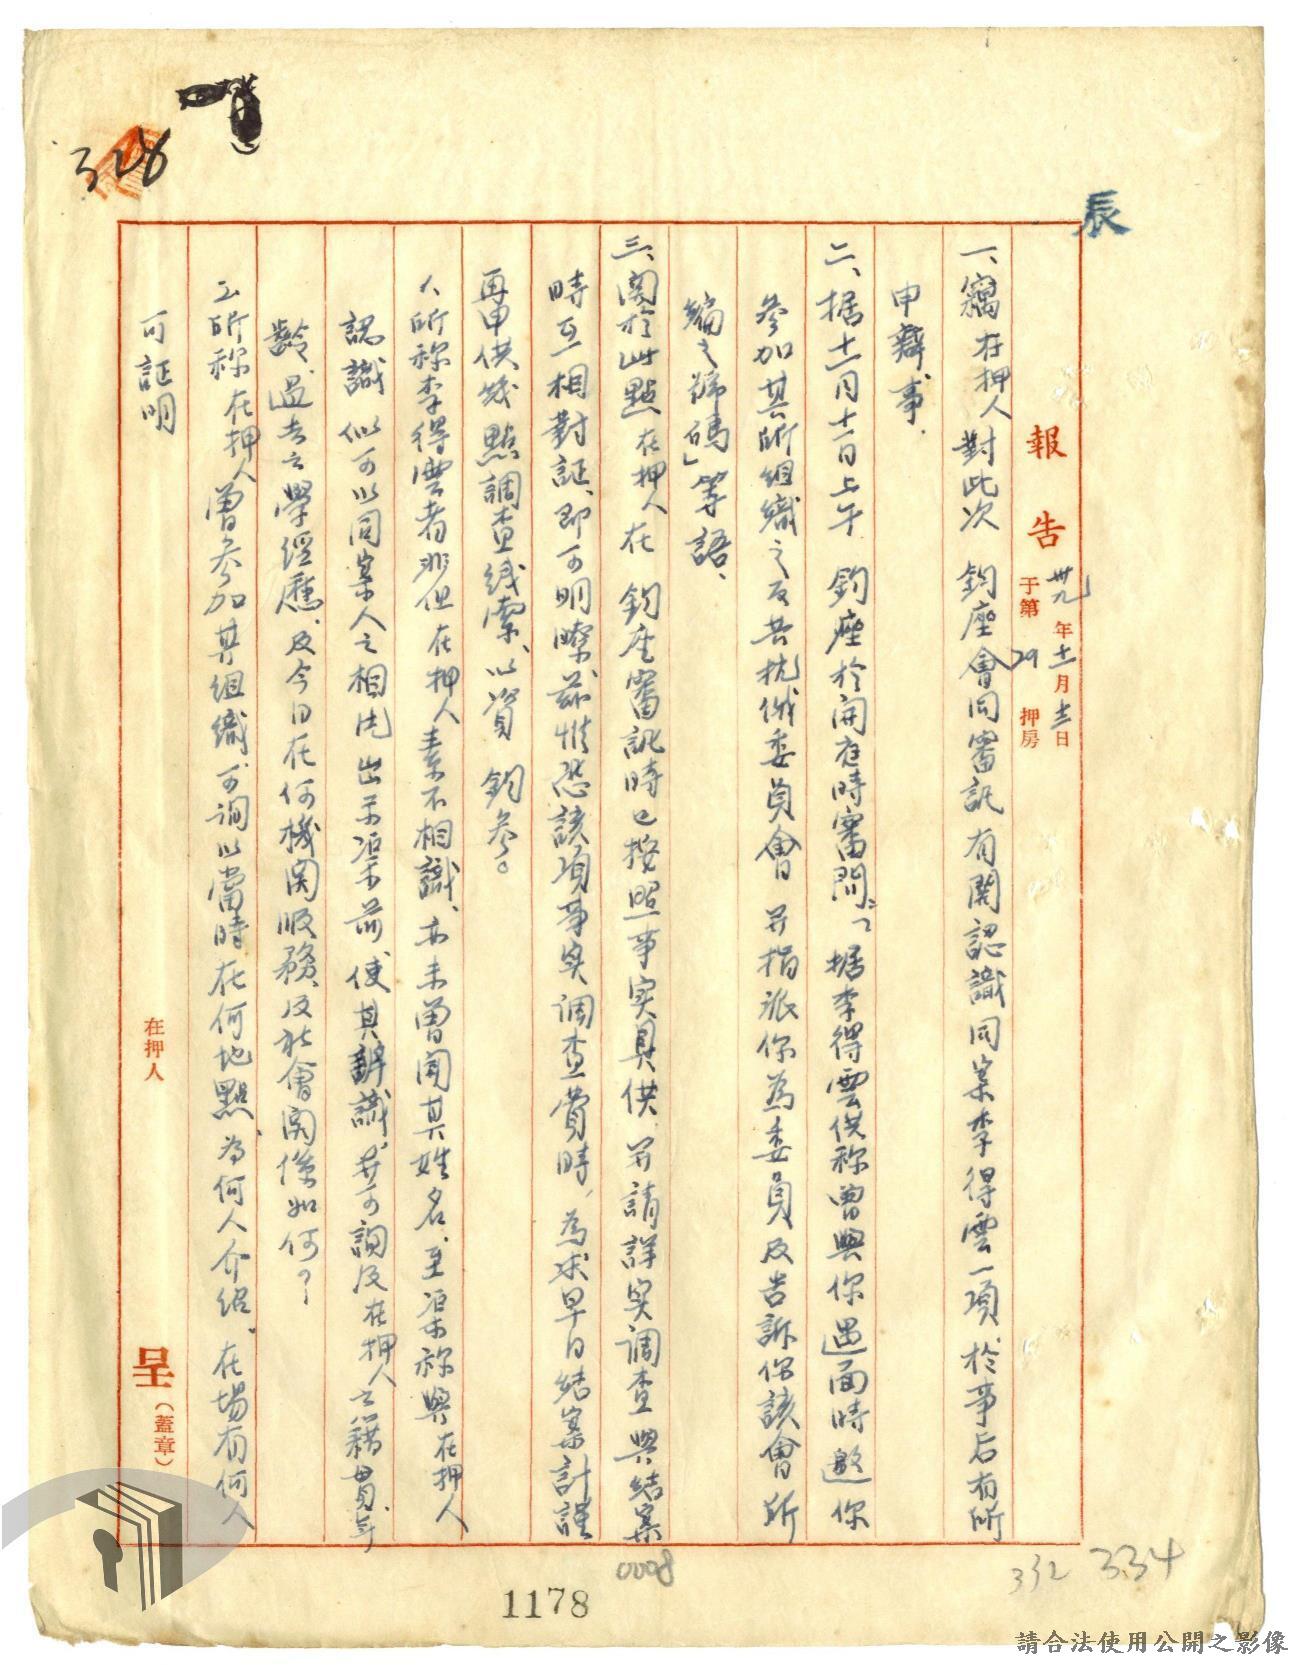 328
辰
報告 卅九年十一月十三日
于第29押房
一、竊在押人對此次 鈞座會同審訊有関認識同案李得雲一項、於事后有所
申辯事.
二、据十一月十一日上午 鈞座於開庭時審問:「据李得雲供称曾與你遇面時邀你
参加其所組織之反共抗俄委員會 并指派你為委員及告訴你該會所
編之號碼」等語、
三、関於此點在押人在 鈞座審訊時已按照事实具供.并請詳实調查與結案
時互相對証、即可明瞭茲惟恐該項事实調查費時,為求早日結案計謹
再申供幾點調查线索、以資 鈞参。
1、所称李得雲者非但在押人素不相識、亦未曾聞其姓名、至渠称與在押人
認識 似可以同案人之相片出示渠前、使其辭識、并可詢及在押人之籍貫、年
齡、過去之學經歷、及今日在何機関服務、及社會関係如何?
2、所称在押人曾参加其組織、可詢以當時在何地點、為何人介绍、在場有何人
可証明
在押人 呈(蓋章)
0008
1178
332 334
請合法使用公開之影像